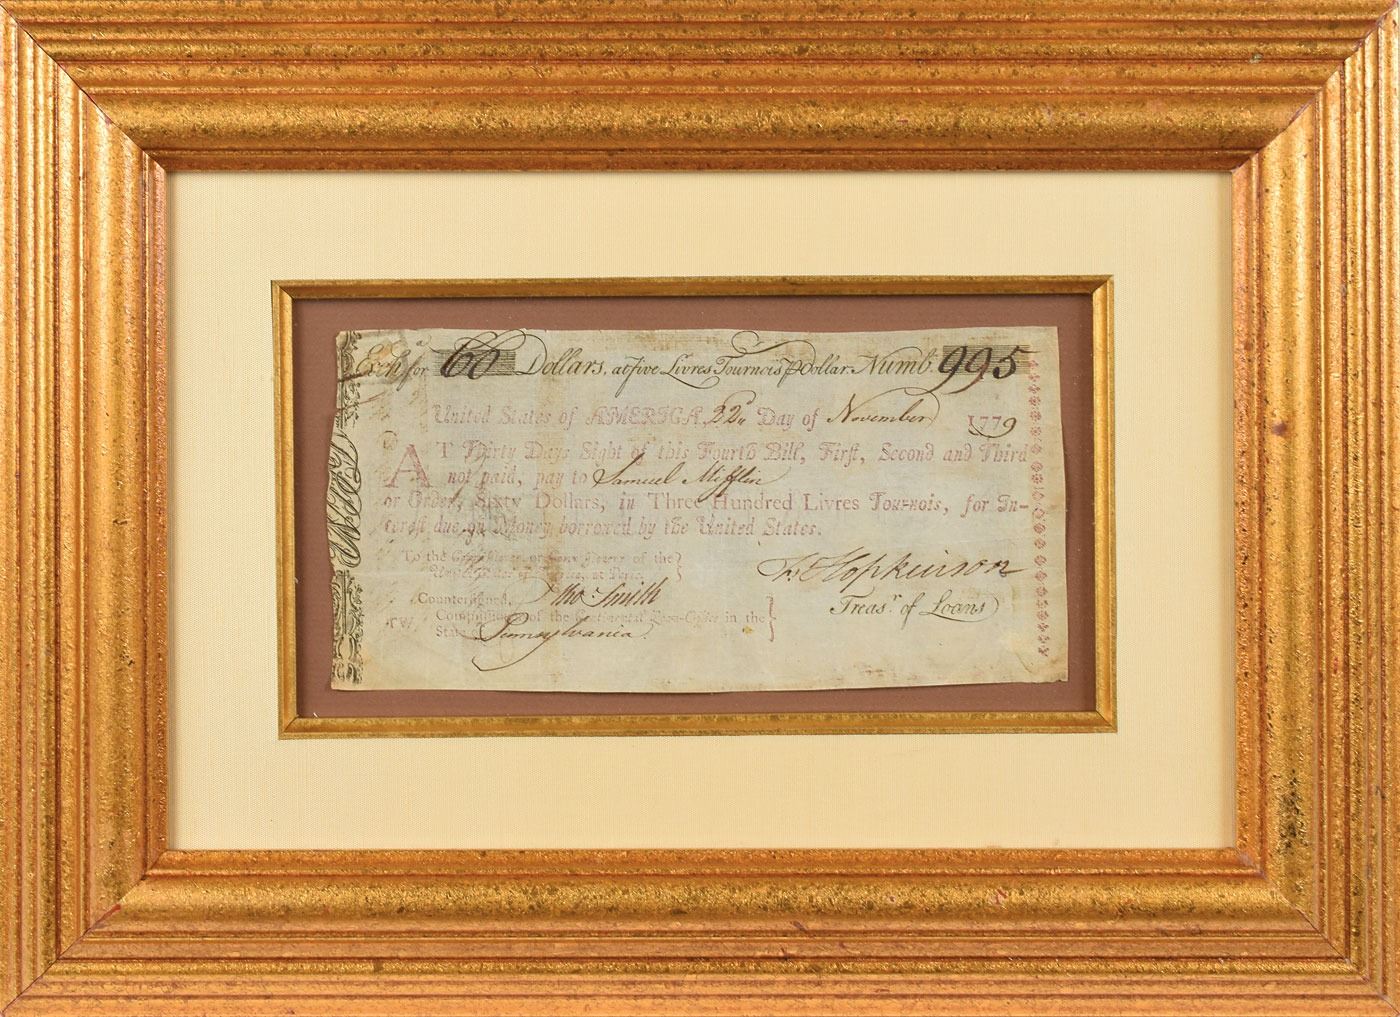 Exchᵃ for 60 Dollars, at five Livres Tournois ℘ Dollar. Numb. 995
United States of AMERICA, 22ᵈ Day of November 1779
AT Thirty Days Sight of this Fourth Bill, First, Second and Third
not paid, pay to Samuel Mifflin
or Order, Sixty Dollars, in Three Hundred Livres Tournois, for In-
terest due on Money borrowed by the United States.
To the Commissioner or Commissioners of the
United States of America, at Paris.
Fˢ Hopkinson
Treasʳ of Loans
Countersigned, Tho Smith
Commissioner of the Continental Loan-Office in the
State of Pennsylvania